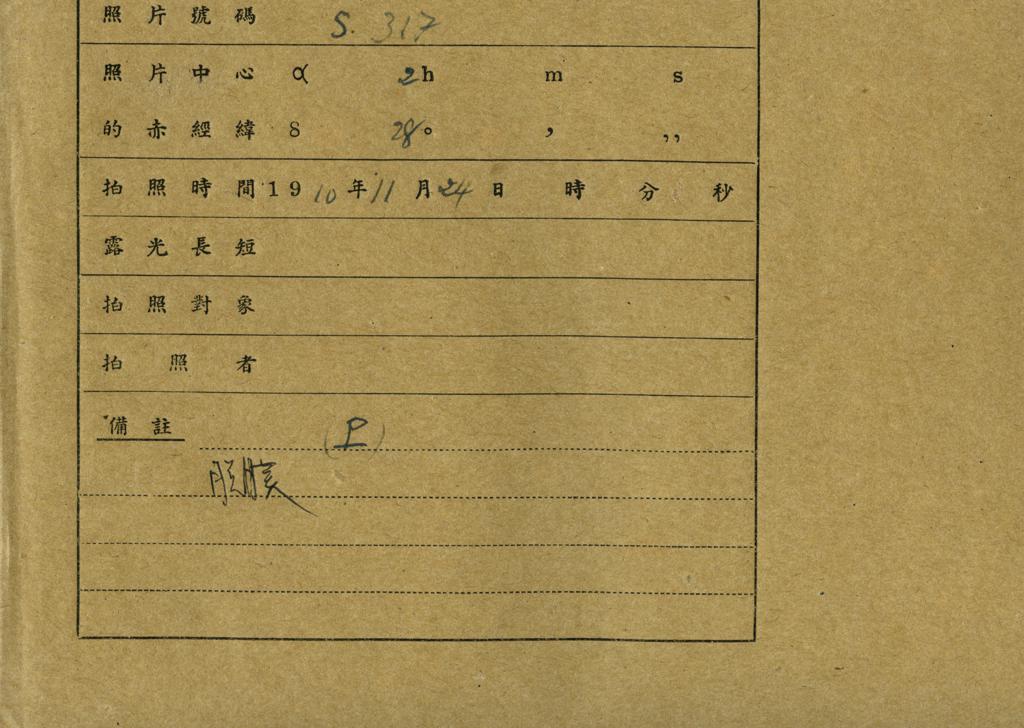 照片號碼 S. 317
照片中心 α 2h m s
的赤經緯 δ 28° ′ ″
拍照時間 1910年11月24日 時 分 秒
露光長短
拍照對象
拍照者
備註 (P)
脱膜